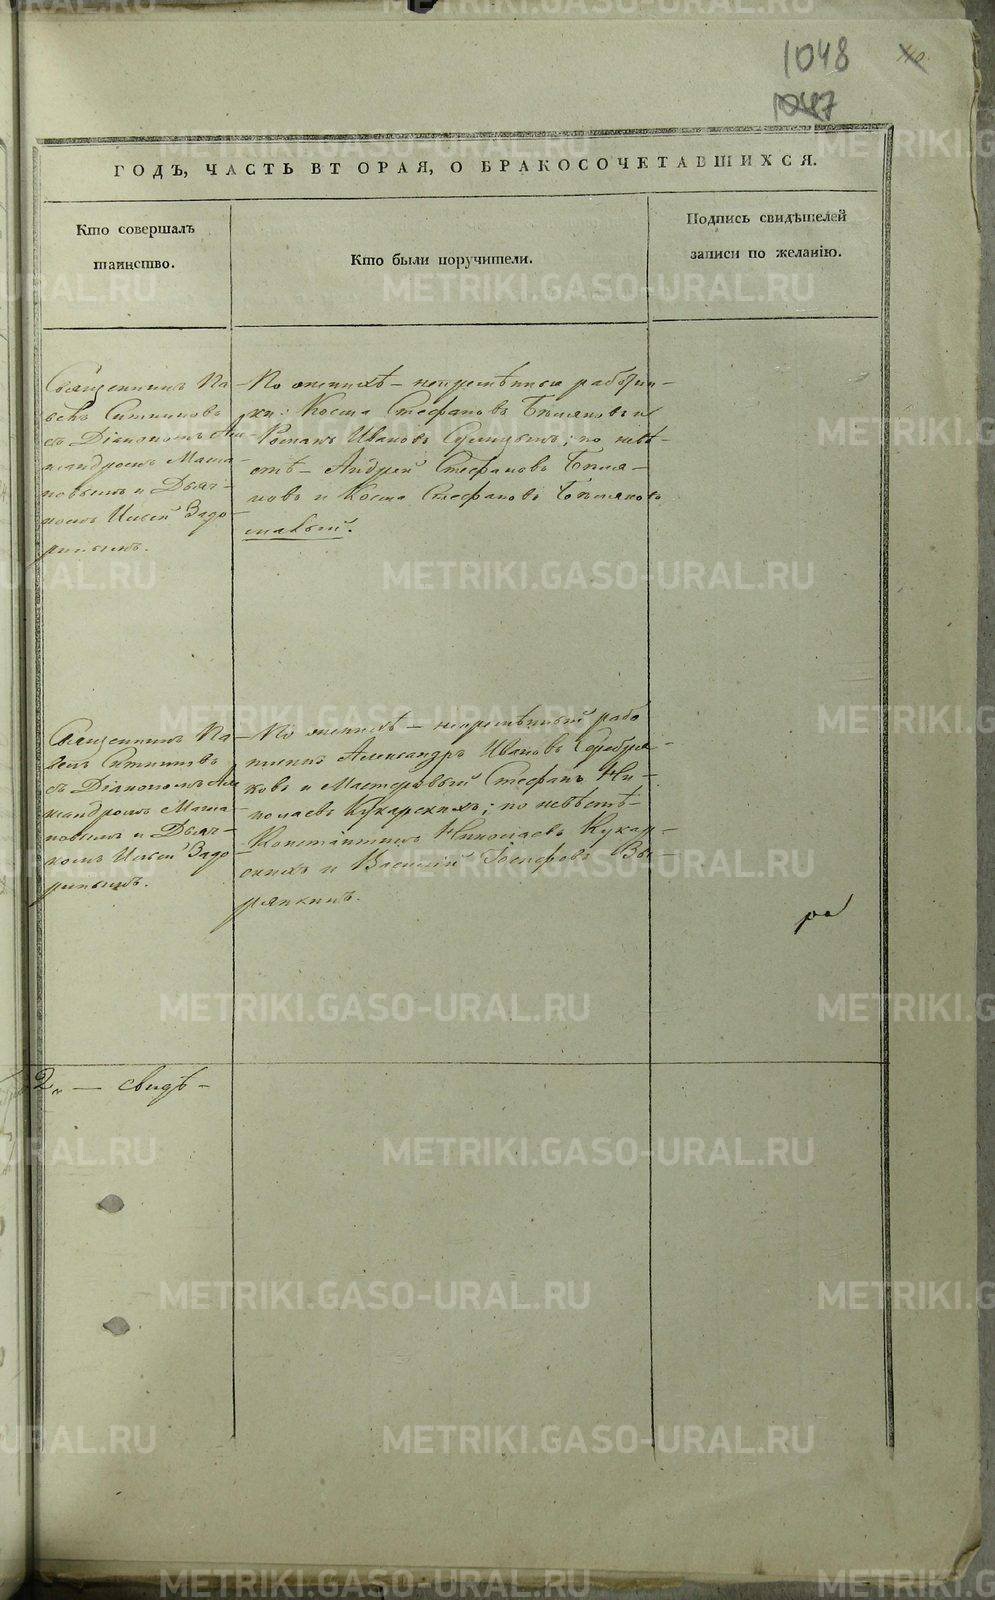 1048
1047
ГОДЪ, ЧАСТЬ ВТОРАЯ, О БРАКОСОЧЕТАВШИХСЯ.
Кто совершалъ
таинство.
Кто были поручители.
Подпись свидѣтелей
записи по желанію.
Священникъ Па-
велъ Ситниковъ
съ Діакономъ Але
ксандромъ Мама
новымъ и Дьяч-
комъ Ильей Задо-
ринымъ.
По женихѣ - непремѣнные работни-
ки: Косма Стефановъ Бѣляковъ и
Романъ Ивановъ; по невѣ-
стѣ - Андрей Стефановъ Бѣля-
ковъ и Косма Стефановъ Бѣляковъ
такый.
Священникъ Па-
велъ Ситниковъ
съ Діакономъ Але
ксандромъ Мама
новымъ и Дьяч-
комъ Ильей Задо
ринымъ.
По женихѣ - непремѣнный рабо
тникъ Александръ Ивановъ Серебря-
ковъ и Мастеровый Стефанъ Ни-
колаевъ Кукарскихъ; по невѣстѣ -
Константинъ Николаевъ Кукар-
скихъ и Василій Іосифовъ Вы-
ряпкинъ.
2. — свидѣ -
METRIKI.GASO-URAL.RU